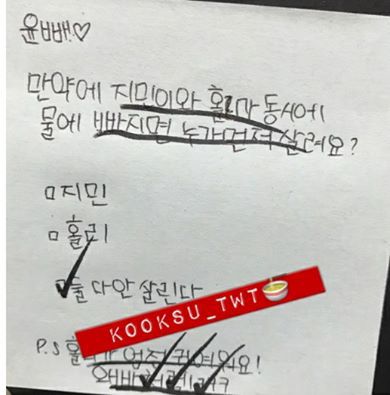 윤빠♡
만약에 지민이와 홀리가 동시에
물에 빠지면 누가먼저 살려요?
□지민
□홀리
둘 다안 살린다
KOOKSU_TWT
P.S 홀리가 엄청 귀여워요!